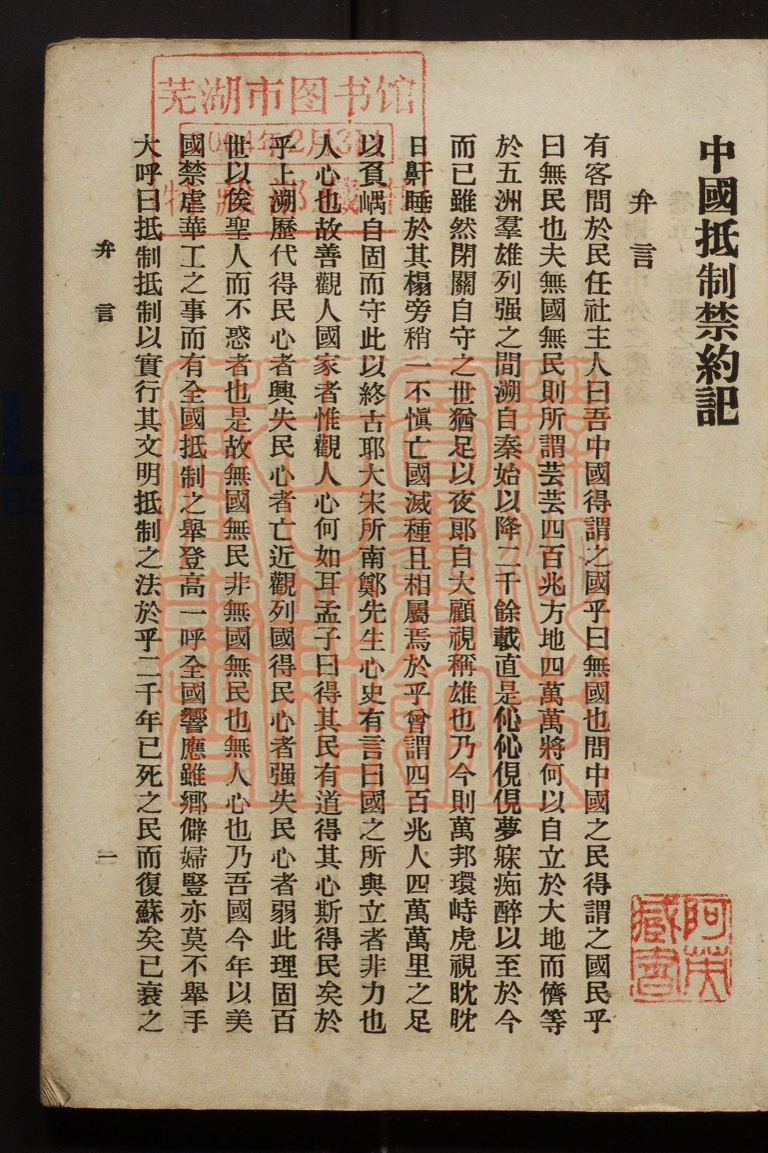 中國抵制禁約記
弁言
有客問於民任社主人曰吾中國得謂之國乎曰無國也問中國之民得謂之國民乎
曰無民也夫無國無民則所謂芸芸四百兆方地四萬萬將何以自立於大地而儕等
於五洲羣雄列强之間溯自秦始以降二千餘載直是伈伈俔俔夢寐痴醉以至於今
而已雖然閉關自守之世猶足以夜郞自大顧視稱雄也乃今則萬邦環峙虎視眈眈
日鼾睡於其榻旁稍一不愼亡國滅種且相屬焉於乎曾謂四百兆人四萬萬里之足
以負嵎自固而守此以終古耶大宋所南鄭先生心史有言曰國之所與立者非力也
人心也故善觀人國家者惟觀人心何如耳孟子曰得其民有道得其心斯得民矣於
乎上溯歷代得民心者興失民心者亡近觀列國得民心者强失民心者弱此理固百
世以俟聖人而不惑者也是故無國無民非無國無民也無人心也乃吾國今年以美
國禁虐華工之事而有全國抵制之舉登高一呼全國響應雖鄉僻婦豎亦莫不舉手
大呼曰抵制抵制以實行其文明抵制之法於乎二千年已死之民而復蘇矣已衰之
弁言
一
芜湖市图书馆
2004年2月3日
特藏部藏書
阿英藏書